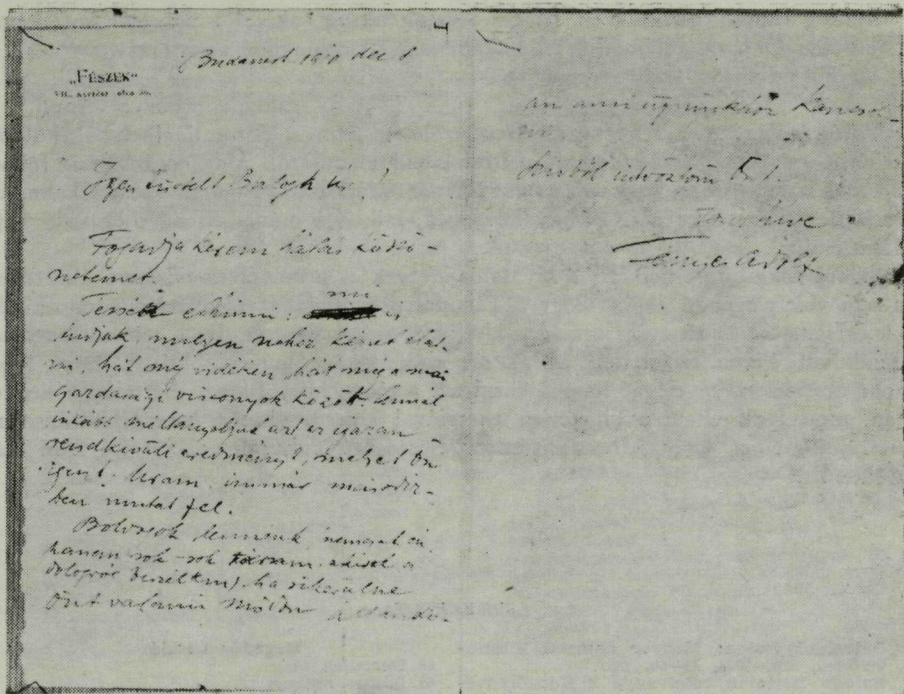 „FÉSZEK"
Budapest dec 8
Igen tisztelt Balogh úr!
Fogadja kérem hálás köszö-
netemet.
Tessék elhinni: mi is
tudjuk, milyen nehéz képet elad-
ni, hát még vidéken, hát még a mai
gazdasági viszonyok között. Annál
inkább méltányoljuk azt az igazán
rendkívüli eredményt, melyet Ön
igen t. Uram, immár másodíz-
ben mutat fel.
Boldogok lennénk, nemcsak én,
hanem sok-sok társam, akivel a
dologról beszéltem, ha sikerülne
Önt valami módon állandó-
an ami ügyünkhöz láncol-
ni.
Szívből üdvözlöm Önt
igaz híve
Fényes Adolf